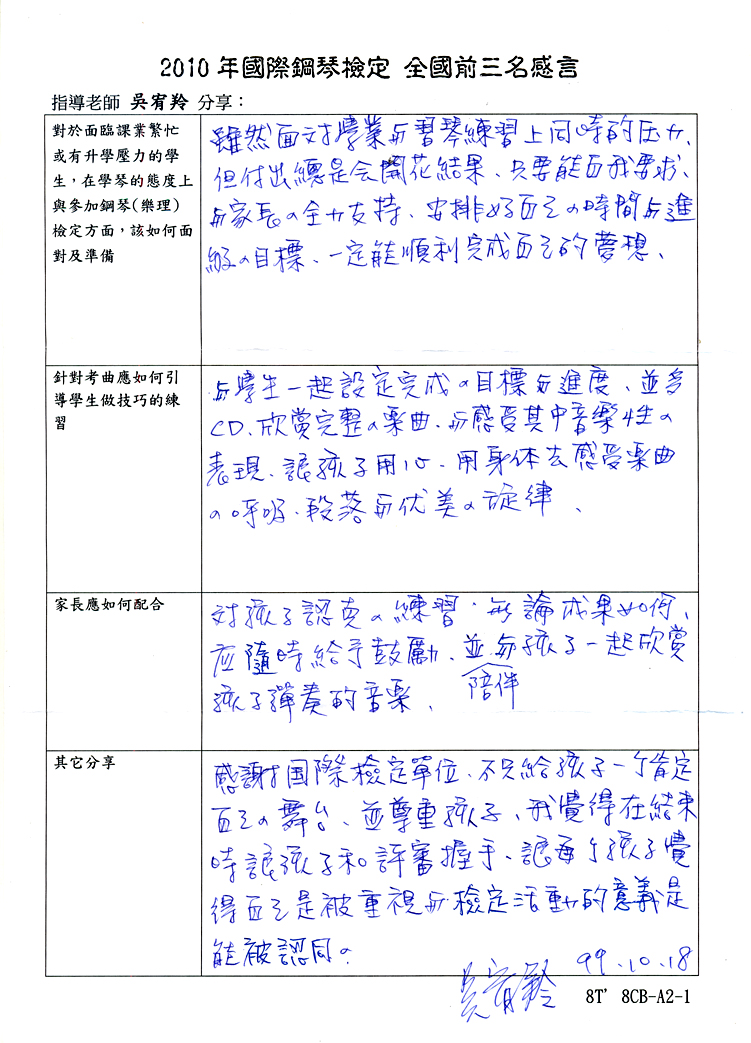 2010 年國際鋼琴檢定 全國前三名感言
指導老師 吳宥羚 分享：
對於面臨課業繁忙
或有升學壓力的學
生，在學琴的態度上
與參加鋼琴(樂理)
檢定方面，該如何面
對及準備
雖然面对學業与習琴練習上同時的压力、
但付出總是会開花結果、只要能自我要求、
与家長の全力支持、安排好自己の時間与進
級の目標、一定能順利完成自己的夢想、
針對考曲應如何引
導學生做技巧的練
習
与學生一起設定完成の目標与進度、並多
CD、欣赏完整の楽曲、与感受其中音樂性の
表現、讓孩子用心、用身体去感受楽曲
の呼吸、段落与优美の旋律、
家長應如何配合
对孩子認真の練習、無論成果如何、
应隨時給予鼓勵、並与孩子一起欣赏
陪伴
孩子彈奏的音楽、
其它分享
感謝国際檢定單位、不只給孩子一个肯定
自己の舞台、並尊重孩子、我覺得在結束
時讓孩子和評審握手、讓每个孩子覺
得自己是被重視与檢定活動的意義是
能被認同。
吳宥羚 99.10.18
8T' 8CB-A2-1